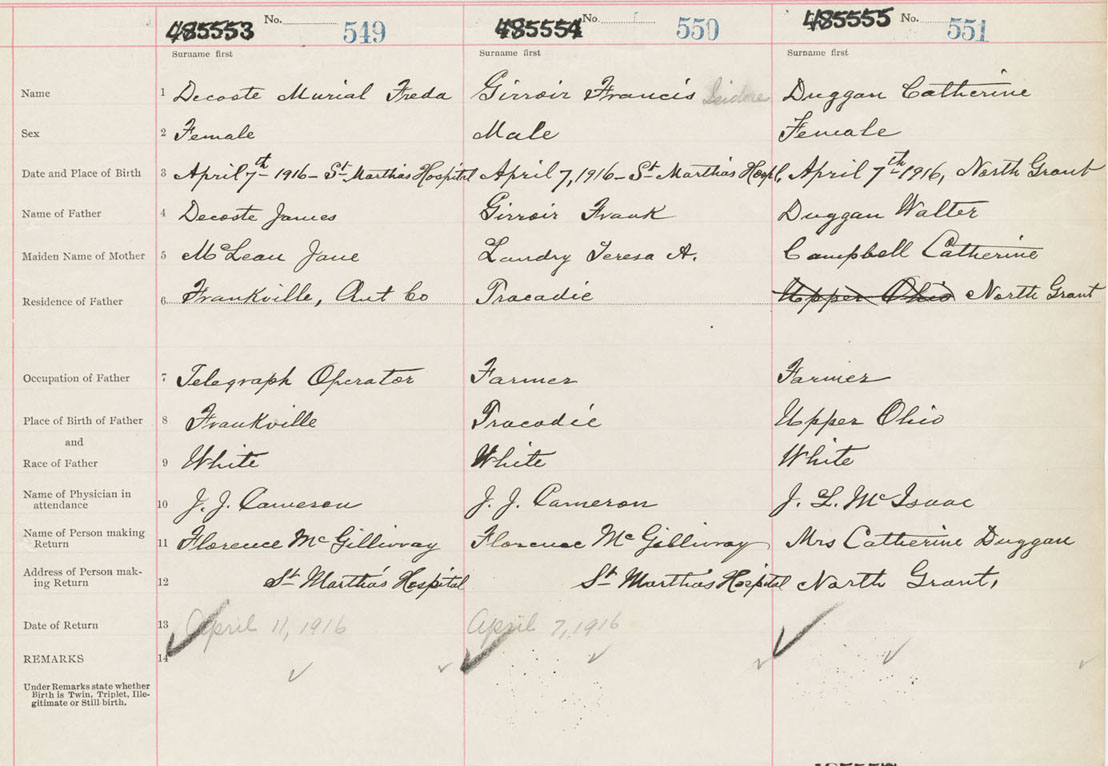 485553 No. 549 485554 No. 550 485555 No. 551
Surname first Surname first Surname first
Name 1 Decoste Murial Freda Girroir Francis Isidore Duggan Catherine
Sex 2 Female Male Female
Date and Place of Birth 3 April 7th 1916 - St Marthas Hospital April 7, 1916 - St Marthas Hospl, April 7th 1916, North Grant
Name of Father 4 Decoste James Girroir Frank Duggan Walter
Maiden Name of Mother 5 McLean Jane Landry Teresa A. Campbell Catherine
Residence of Father 6 Frankville, Ant Co Tracadie Upper Ohio North Grant
Occupation of Father 7 Telegraph Operator Farmer Farmer
Place of Birth of Father 8 Frankville Tracadie Upper Ohio
and
Race of Father 9 White White White
Name of Physician in
attendance 10 J. J. Cameron J. J. Cameron J. L. McIsaac
Name of Person making
Return 11 Florence McGillivray Florence McGillivray Mrs Catherine Duggan
Address of Person mak-
ing Return 12 St Martha's Hospital St Marthas Hospital North Grant,
Date of Return 13 April 11, 1916 April 7, 1916
REMARKS 14
Under Remarks state whether
Birth is Twin, Triplet, Ille-
gitimate or Still birth.